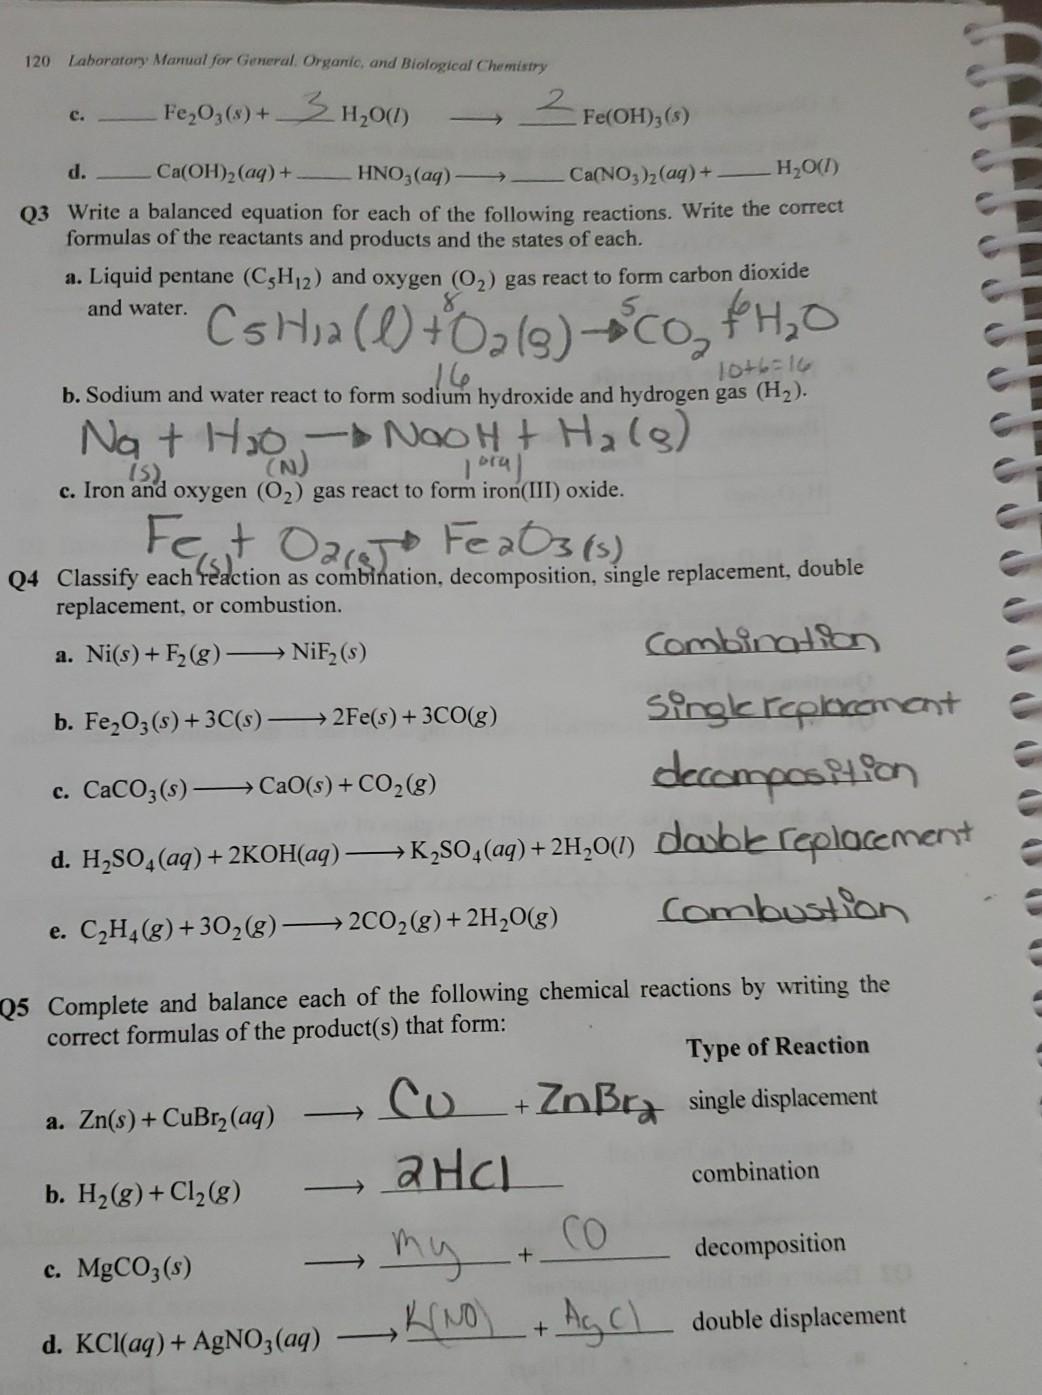 120 Laboratory Manual for General, Organic, and Biological Chemistry
c. ____ Fe₂O₃(s) + 3 H₂O(l) ⟶ 2 Fe(OH)₃(s)
d. ____ Ca(OH)₂(aq) + ____ HNO₃(aq) ⟶ ____ Ca(NO₃)₂(aq) + ____ H₂O(l)
Q3 Write a balanced equation for each of the following reactions. Write the correct
formulas of the reactants and products and the states of each.
a. Liquid pentane (C₅H₁₂) and oxygen (O₂) gas react to form carbon dioxide
and water.
C5H12(l) + 8O2(g) → 5CO2 + 6H2O
16 10+6=16
b. Sodium and water react to form sodium hydroxide and hydrogen gas (H₂).
Na + H2O → NaOH + H2(g)
(s)
c. Iron and oxygen (O₂) gas react to form iron(III) oxide.
Fe(s) + O2(g) → Fe2O3(s)
Q4 Classify each reaction as combination, decomposition, single replacement, double
replacement, or combustion.
a. Ni(s) + F₂(g) ⟶ NiF₂(s) combination
b. Fe₂O₃(s) + 3C(s) ⟶ 2Fe(s) + 3CO(g) single replacement
c. CaCO₃(s) ⟶ CaO(s) + CO₂(g) decomposition
d. H₂SO₄(aq) + 2KOH(aq) ⟶ K₂SO₄(aq) + 2H₂O(l) double replacement
e. C₂H₄(g) + 3O₂(g) ⟶ 2CO₂(g) + 2H₂O(g) Combustion
Q5 Complete and balance each of the following chemical reactions by writing the
correct formulas of the product(s) that form:
Type of Reaction
a. Zn(s) + CuBr₂(aq) ⟶ Cu + ZnBr2 single displacement
b. H₂(g) + Cl₂(g) ⟶ 2HCl combination
c. MgCO₃(s) ⟶ My + CO decomposition
d. KCl(aq) + AgNO₃(aq) ⟶ K(NO) + AgCl double displacement